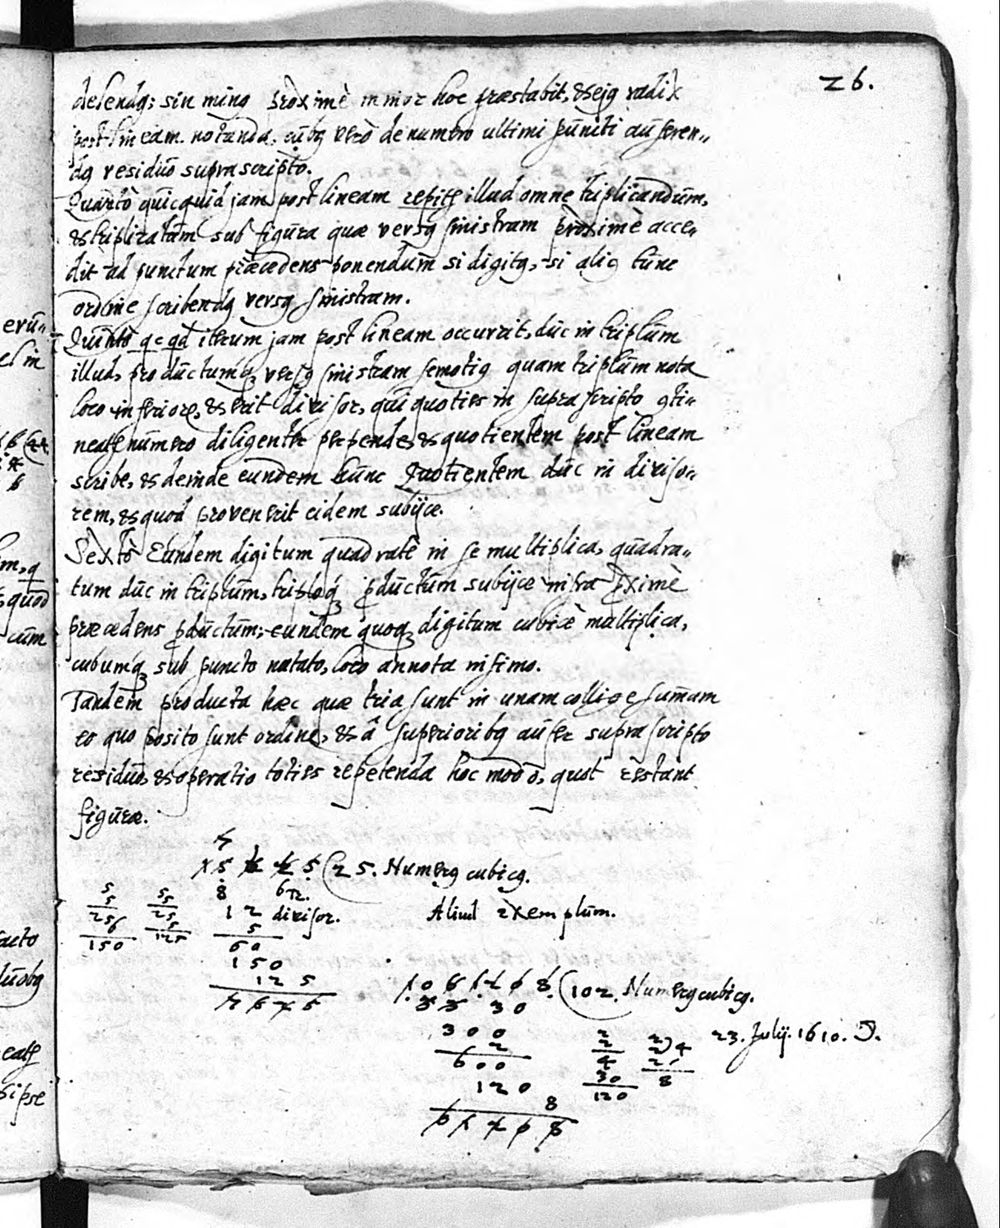 26.
delendq; sin minq proximè minor hoc præstabit, & ejq radix
post lineam notanda, cubq verò de numero ultimi puncti auferen„
dq residuo supra scripto.
Quartò quicquid jam post lineam illud omne triplicandum,
& triplicatum sub figura quæ versq sinistram pròximè acce„
dit ad punctum præcedens ponendum si digitq, si aliq tunc
ordine scribendq versq sinistram.
Quintò qcqd iterum jam post lineam occurrit, duc in triplum
illud, productumq versq sinistram semotiq quam triplum nota
loco inferiore, & erit divisor, qui quoties in supra scripto 9ti„
neatr numero diligenter perpende, & quotientem post lineam
scribe, & deinde eundem hunc Quotientem duc in diviso„
rem, & quod provenerit eidem subijce.
Sextò Eundem digitum quadratè in se multiplica, quadra„
tum duc in triplum, pductum subijce infra pximè
præcedens pductum; eundem quoq digitum cubicè multiplica,
cubumq sub puncto notato, loco annota infimo.
Tandem producta hæc quæ tria sunt in unam collige sumam
eo quo posito sunt ordine, & â superioribq aufer supra scripto
residuo, & operatio toties repetenda hoc modo, quot restant
figuræ.
7
1 5 6 2 5 (25. Numerq cubicq.
8 6
5 5 12 divisor. Aliud exemplum.
5 5 5
25 25 60
6 5 150
150 125 125
7 6 2 5
1 0 6 1 2 0 8 (102. Numerq cubicq.
3 3 3 0
3 0 0 2 2)4 23. Julij. 1610. D.
2 2 2
6 0 0 4 8
1 2 0 30
8 120
6 1 2 0 8